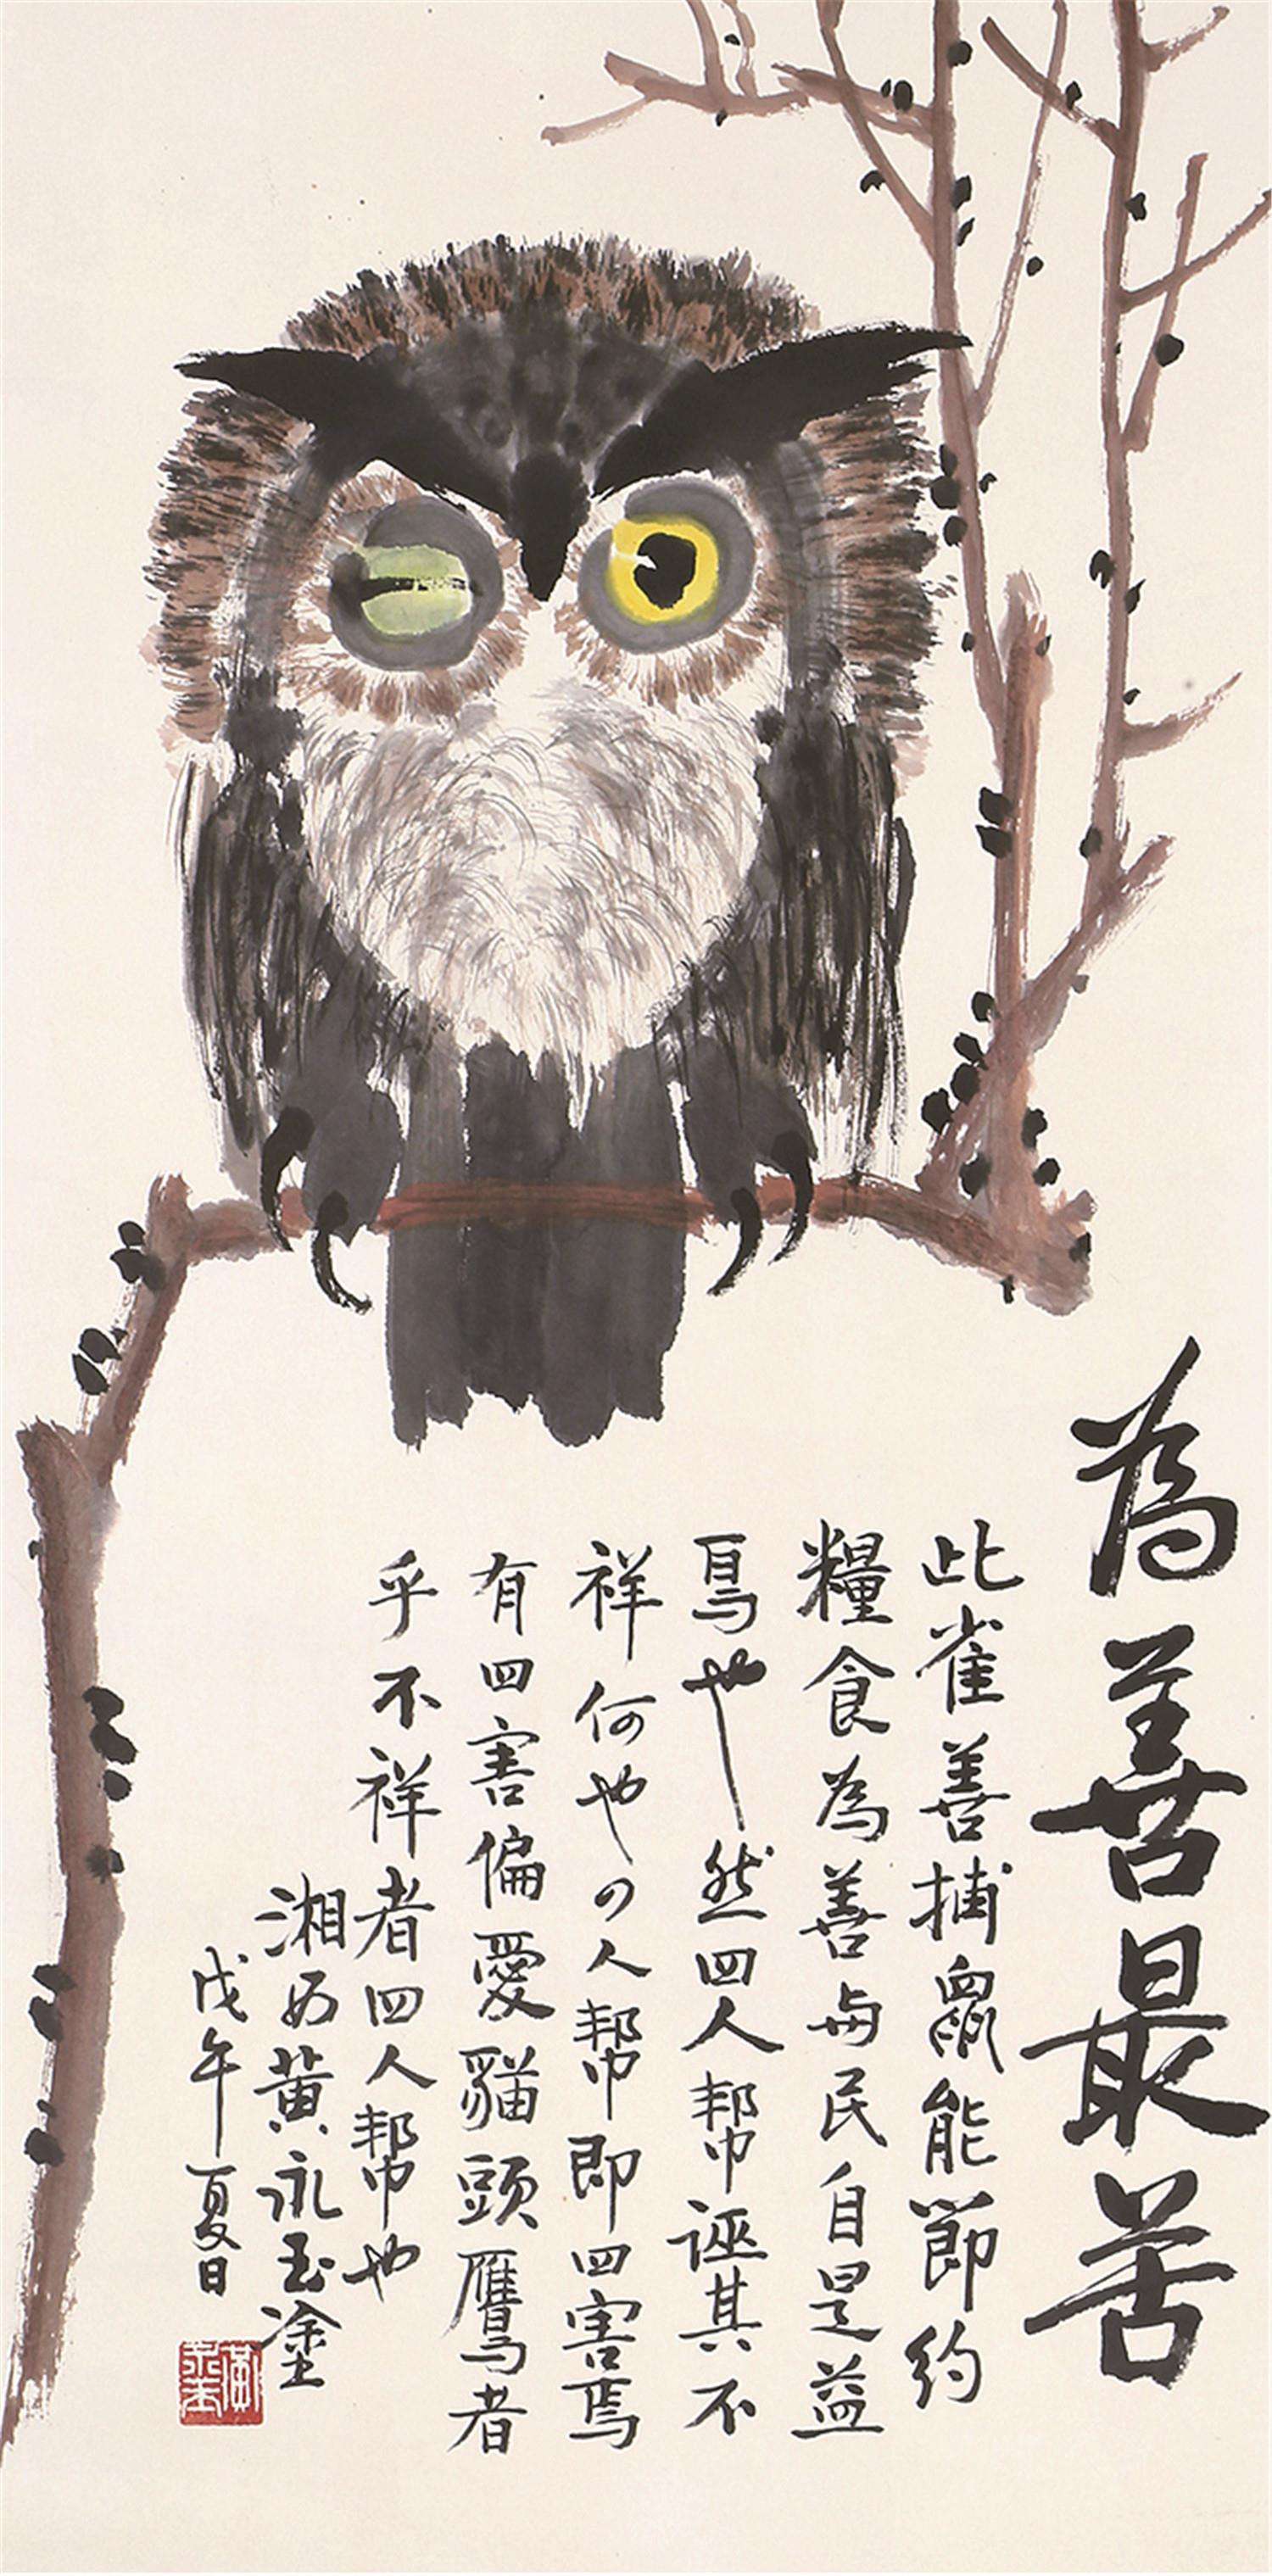 為善最苦
此雀善捕鼠能節約
糧食為善与民自是益
鳥也然四人帮誣其不
祥何也四人帮即四害焉
有四害偏愛貓頭鷹者
乎不祥者四人帮也
湘西黃永玉塗
戊午夏日
黃永玉